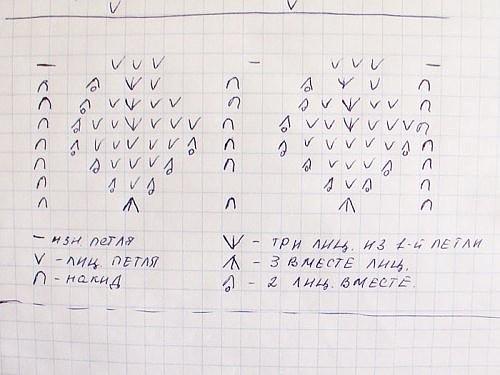 — изн петля
V - лиц. петля
∩ - накид
- три лиц. из 1-й петли
- 3 вместе лиц.
- 2 лиц. вместе.